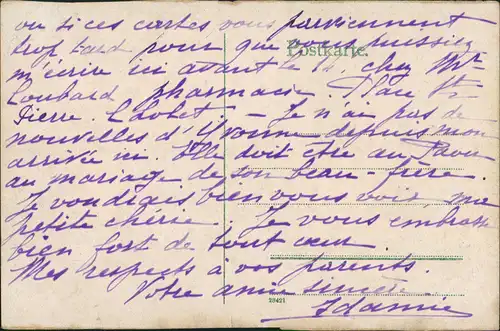 ou si ces cartes vous parviennent
trop tard pour que vous puissiez
Postkarte.
m'écrire ici avant le 11, chez Mr
Loubard pharmacie Place St
Pierre. - Je n'ai pas de
nouvelles d'Yvonne depuis mon
arrivée ici. Elle doit être au
au mariage de son beau-frère.
Je voudrais bien vous voir ma
petite chérie. Je vous embrasse
bien fort de tout cœur
Mes respects à vos parents.
Votre amie sincère
Idamie
29421